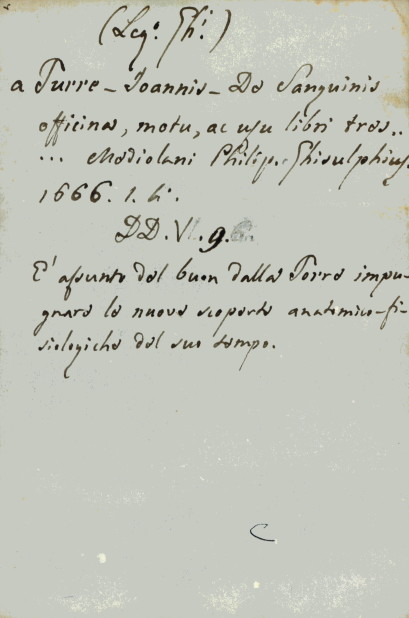 (Leg.º Ghi.)
a Turre – Joannis – De Sanguinis
officina, motu, ac usu libri tres..
... Mediolani Philip. Ghisulphius,
1666. 1. h.
DD. VI. 9.
E' assunto del buon dalla Torre impu-
gnare le nuove scoperte anatomico-fi-
siologiche del suo tempo.
C